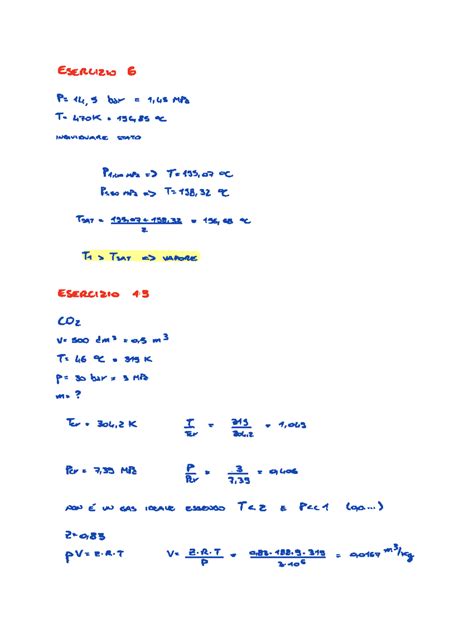 ESERCIZIO 6
P= 14,5 bar = 1,45 MPa
T= 470K = 196,85 °C
INDIVIDUARE STATO
P1,40 MPa => T= 195,07 °C
P1,50 MPa => T= 198,32 °C
TSAT = 195,07+198,32 / 2 = 196,68 °C
T1 > TSAT => VAPORE
ESERCIZIO 15
CO2
V= 500 dm³ = 0,5 m³
T= 46 °C = 319 K
p= 30 bar = 3 MPa
m= ?
Tcr = 304,2 K T/Tcr = 319/304,2 = 1,049
Pcr = 7,39 MPa P/Pcr = 3/7,39 = 0,406
NON É UN GAS IDEALE ESSENDO T<2 E P<<1 (0,0...)
Z=0,83
pV= Z·R·T V= Z·R·T/P = 0,83·188,9·319 / 3·10⁶ = 0,0167 m³/kg